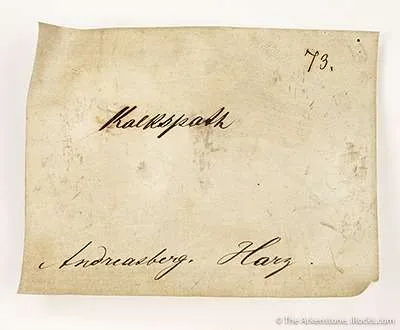 73.
Kalkspath
Andreasberg. Harz.
© The Arkenstone, iRocks.com